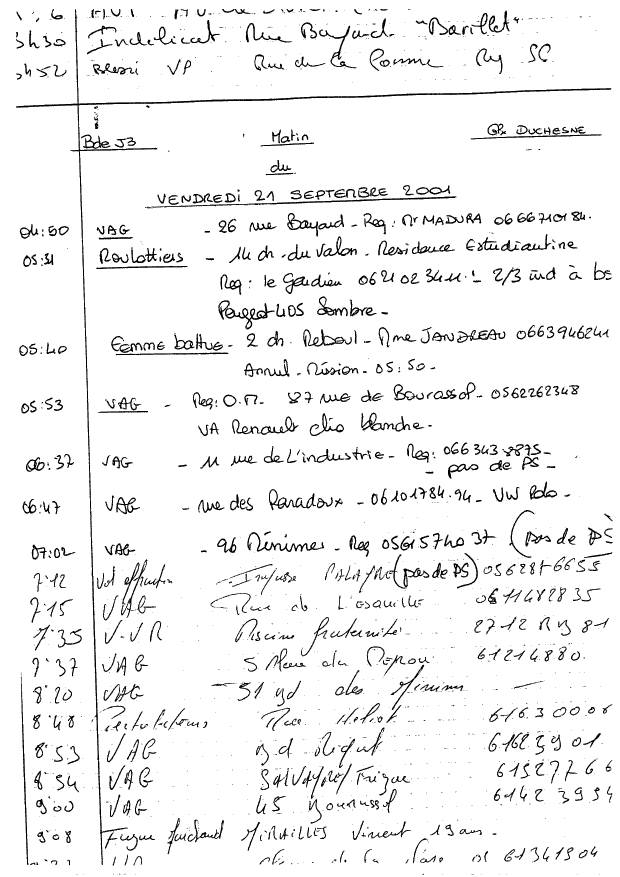 3h30 Indelicat Rue Bayard "Barillet"
h52 VP Rue de la Pomme SC
Bde J3 Matin Gpe DUCHESNE
du
VENDREDI 21 SEPTEMBRE 2001
04:50 VAG - 26 rue Bayard - Req: Mr MADURA 0666710184.
05:31 Roulottiers - 14 ch. du Valon. Residance Estudiantine
Req: le Gardien 0621023411. 2/3 ind à
Peugeot 405 Sombre -
05:40 Femme battue - 2 ch. Reboul - Mme JANDREAU 0663946241
Annul. Mission - 05:50 -
05:53 VAG - Req: O.M. 87 rue de Bourassol - 0562262348
VA Renault clio blanche -
06:37 VAG - 11 rue de L'industrie - Req: 0663438875 -
- pas de PS -
06:47 VAG - rue des Paradoux - 06101784.94 - VW Polo -
07:02 VAG - 96 Minimes - Req 0561574037 (pas de PS
7'12 Vol effraction - PALAYRE (pas de PS) 0562876655
7'15 VAG Rue de L'esquille 0611482835
7'35 V.VR Piscine fraternité 2712 81
7'37 VAG 5 Place du Peyrou 61214880.
8'20 VAG - 51 Bd des Minimes -
8'48 Rue Heliot 61630006
8'53 VAG Bd Riquet 61623901
8'54 VAG SALVAYRE/Frizac 61527766
9'00 VAG 45 Bourrassol 61423954
9'08 Fugue MIRAILLES Vincent 19 ans -
61341904